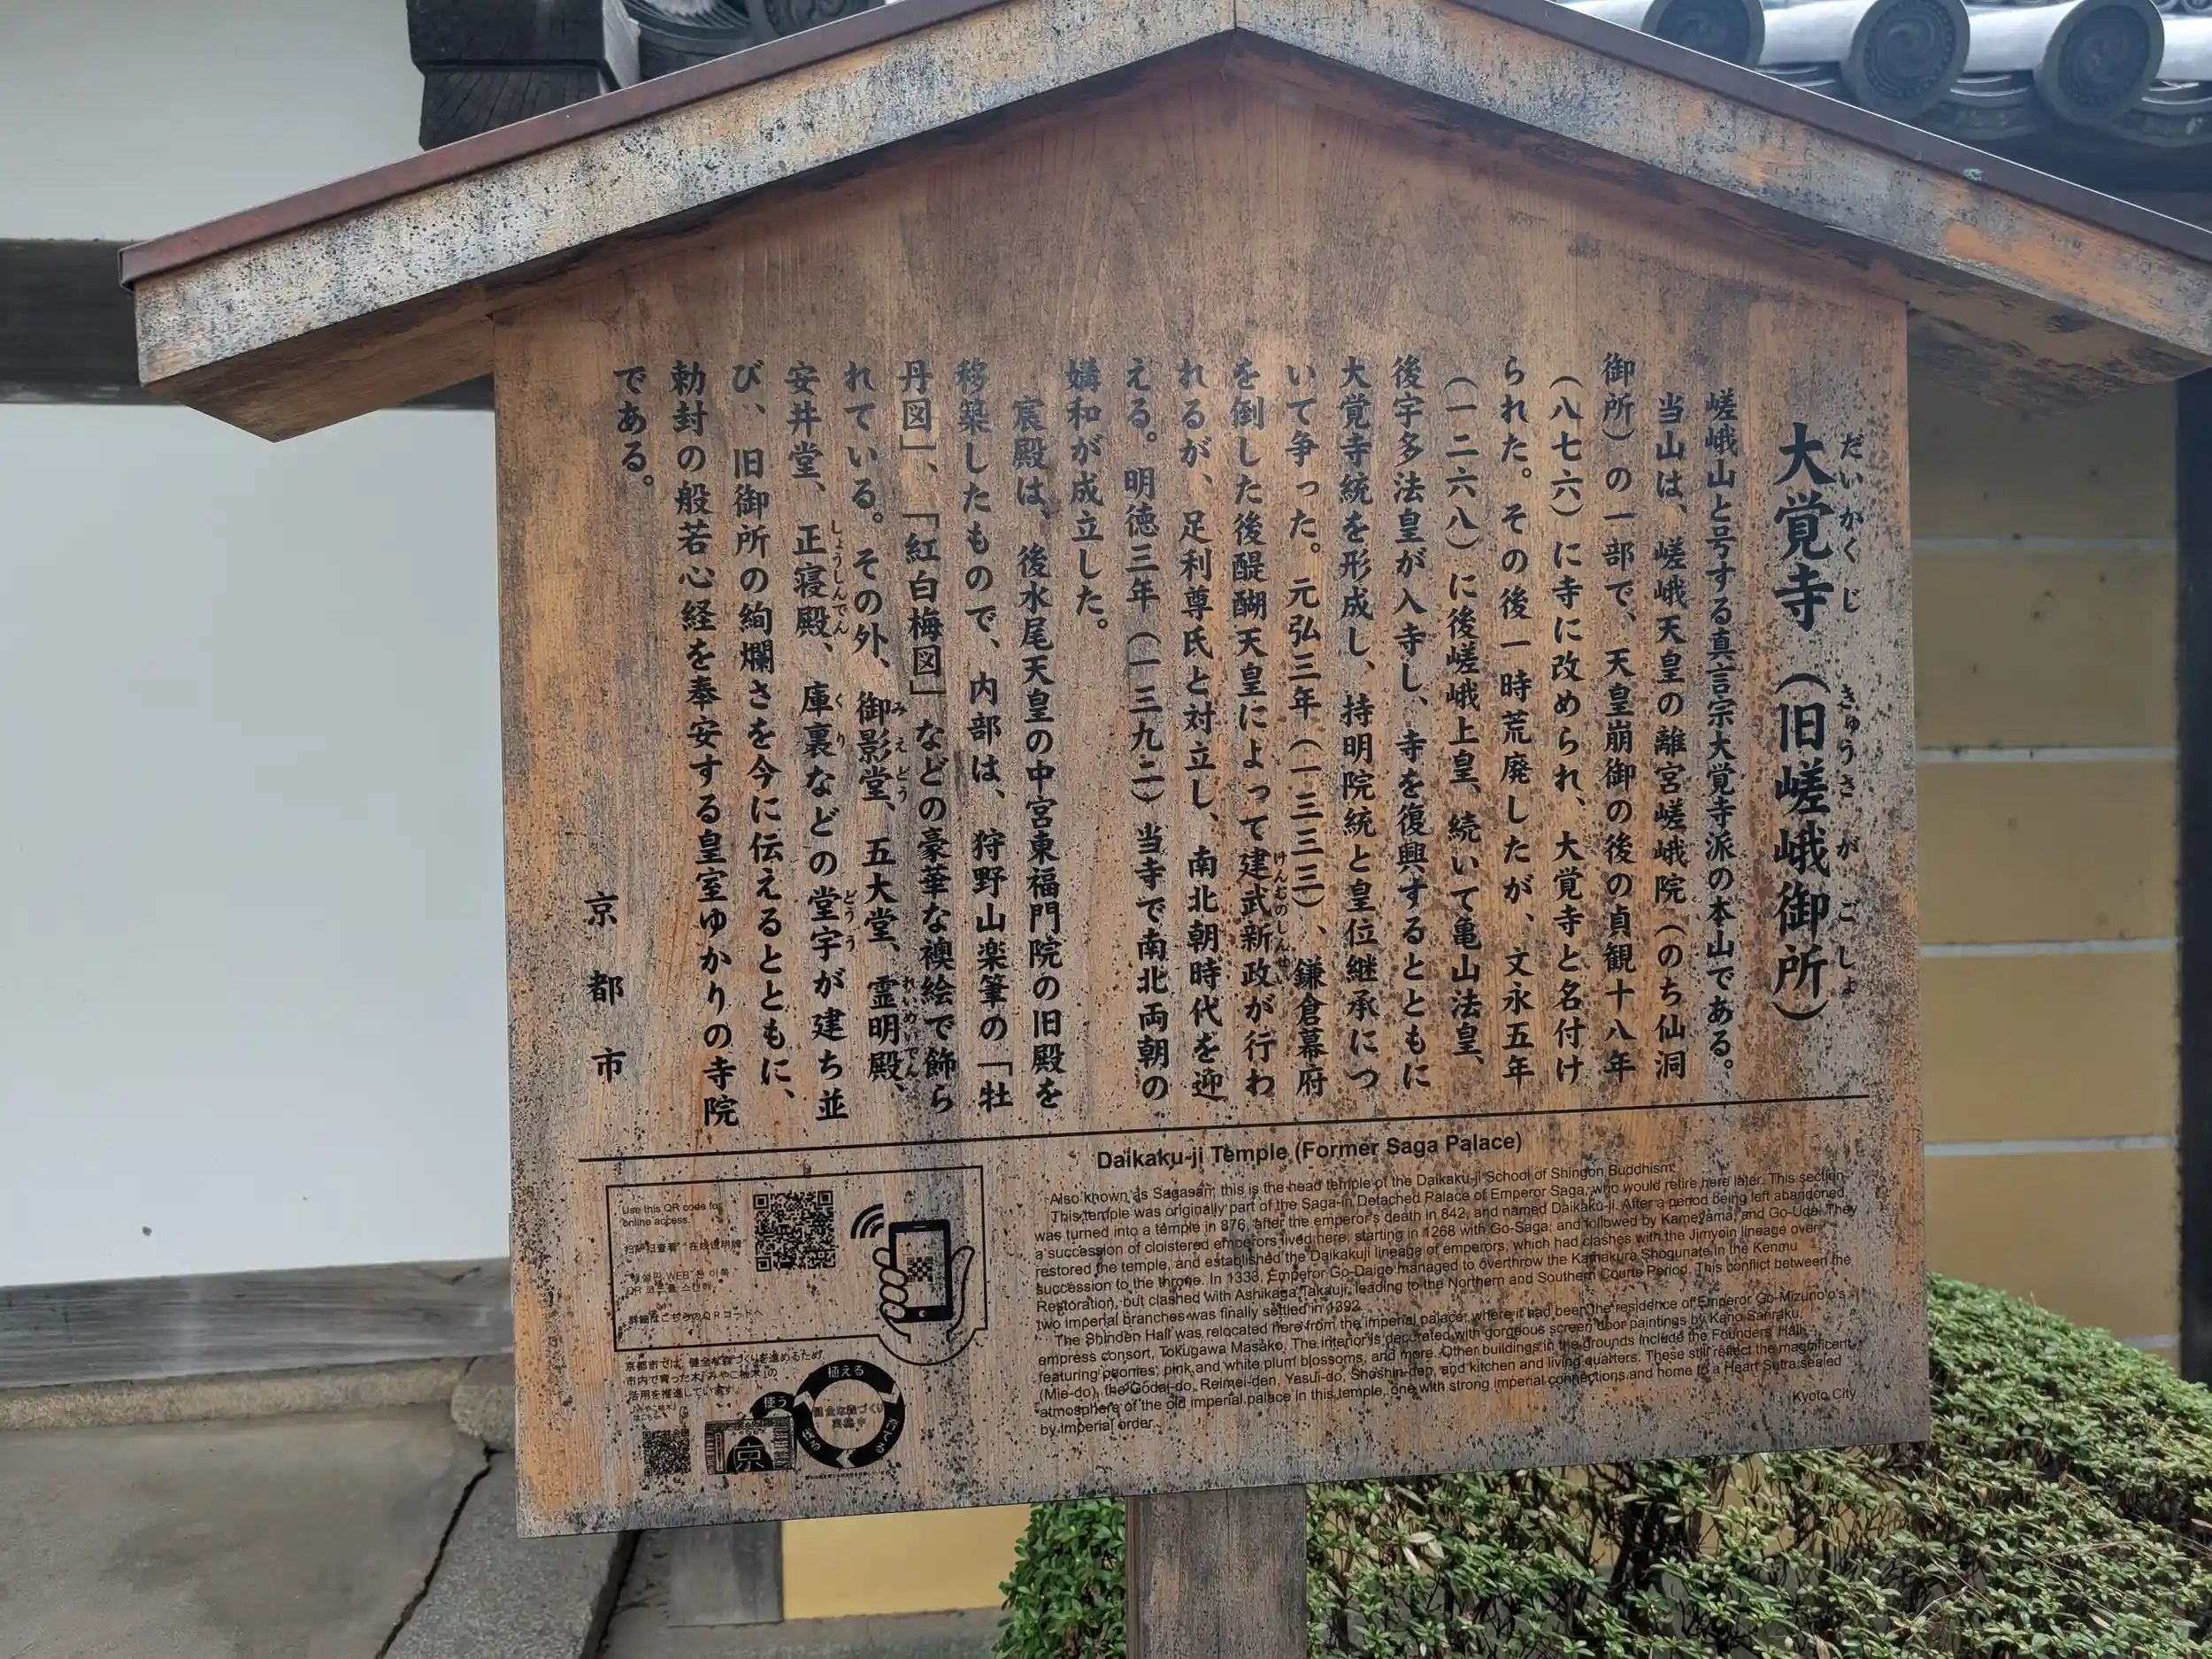 大覚寺（旧嵯峨御所）
だいかくじ きゅうさがごしょ
嵯峨山と号する真言宗大覚寺派の本山である。
当山は、嵯峨天皇の離宮嵯峨院（のち仙洞
御所）の一部で、天皇崩御の後の貞観十八年
（八七六）に寺に改められ、大覚寺と名付け
られた。その後一時荒廃したが、文永五年
（一二六八）に後嵯峨上皇、続いて亀山法皇、
後宇多法皇が入寺し、寺を復興するとともに
大覚寺統を形成し、持明院統と皇位継承につ
いて争った。元弘三年（一三三三）、鎌倉幕府
を倒した後醍醐天皇によって建武新政が行わ
けんむのしんせい
れるが、足利尊氏と対立し、南北朝時代を迎
える。明徳三年（一三九二）当寺で南北両朝の
媾和が成立した。
宸殿は、後水尾天皇の中宮東福門院の旧殿を
移築したもので、内部は、狩野山楽筆の「牡
丹図」、「紅白梅図」などの豪華な襖絵で飾ら
れている。その外、御影堂、五大堂、霊明殿、
みえどう れいめいでん
安井堂、正寝殿、庫裏などの堂宇が建ち並
しょうしんでん くり どうう
び、旧御所の絢爛さを今に伝えるとともに、
勅封の般若心経を奉安する皇室ゆかりの寺院
である。
京都市
Daikaku-ji Temple (Former Saga Palace)
Also known as Sagasan, this is the head temple of the Daikaku-ji School of Shingon Buddhism.
This temple was originally part of the Saga-in Detached Palace of Emperor Saga, who would retire here later. This section
was turned into a temple in 876, after the emperor's death in 842, and named Daikaku-ji. After a period being left abandoned,
a succession of cloistered emperors lived here, starting in 1268 with Go-Saga, and followed by Kameyama, and Go-Uda. They
restored the temple, and established the Daikakuji lineage of emperors, which had clashes with the Jimyoin lineage over
succession to the throne. In 1333, Emperor Go-Daigo managed to overthrow the Kamakura Shogunate in the Kenmu
Restoration, but clashed with Ashikaga Takauji, leading to the Northern and Southern Courts Period. This conflict between the
two imperial branches was finally settled in 1392.
The Shinden Hall was relocated here from the imperial palace, where it had been the residence of Emperor Go-Mizuno'o's
empress consort, Tokugawa Masako. The interior is decorated with gorgeous screen door paintings by Kano Sanraku,
featuring peonies, pink and white plum blossoms, and more. Other buildings in the grounds include the Founders' Hall
(Mie-do), the Godai-do, Reimei-den, Yasui-do, Shoshin-den, and kitchen and living quarters. These still reflect the magnificent
atmosphere of the old imperial palace in this temple, one with strong imperial connections and home to a Heart Sutra sealed
by imperial order.
Kyoto City
Use this QR code for
online access.
扫一扫查看"在线说明牌"
WEB
QR
詳細はこちらのQRコードへ
京都市では、健全な森づくりを進めるため、
市内で育った木「みやこ杣木」の
活用を推進しています。
植える
育てる
使う
京